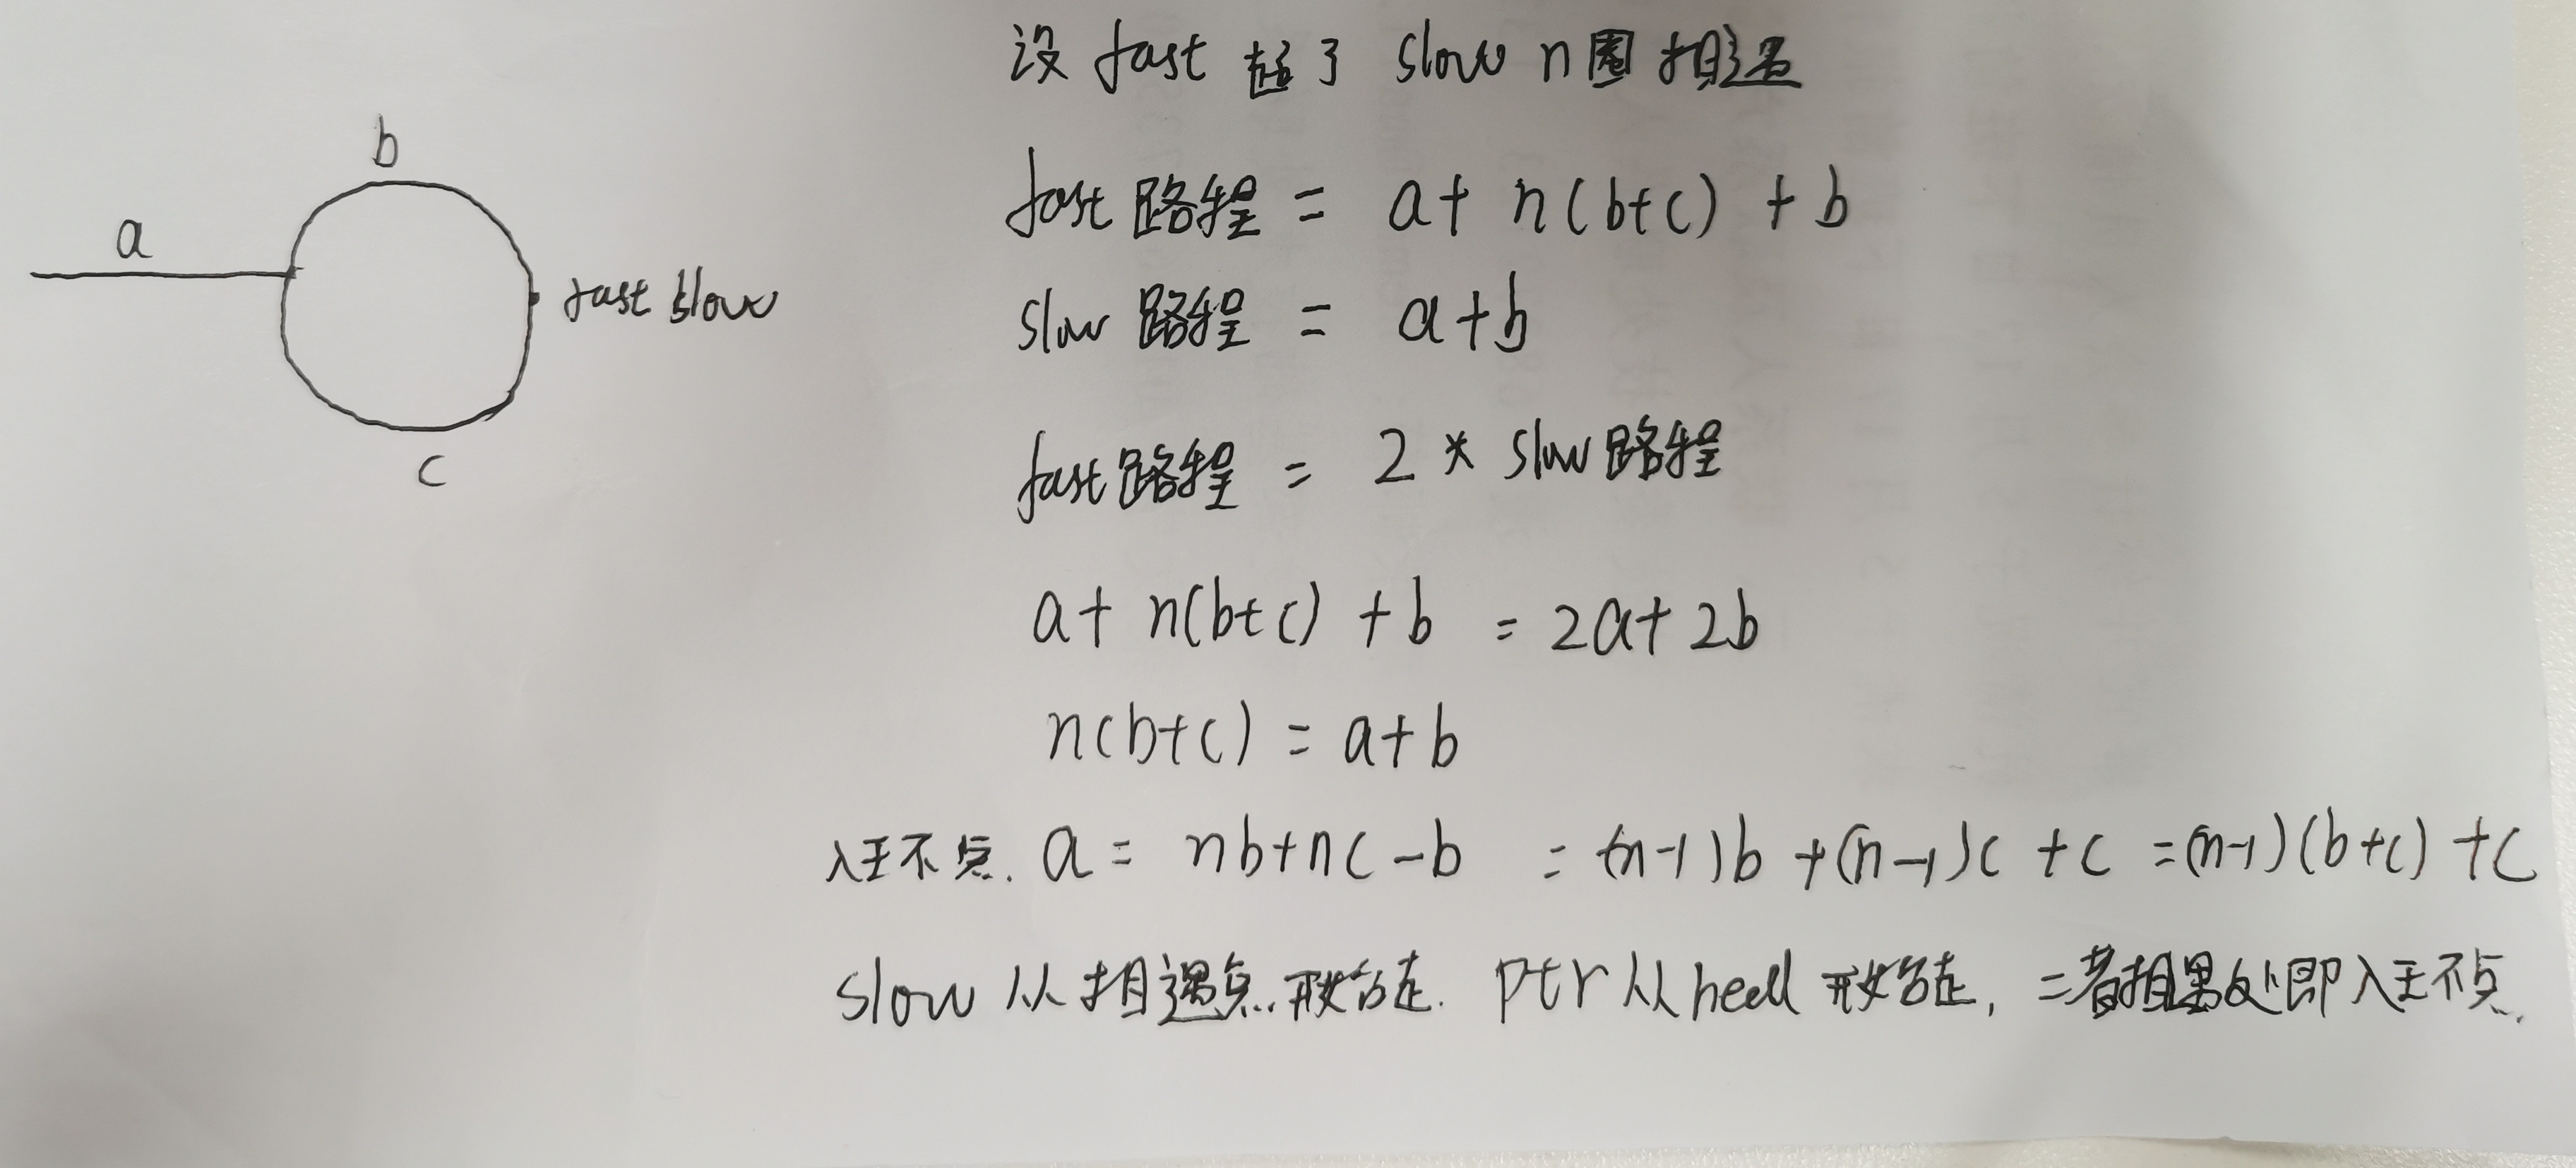 设 fast 超了 slow n圈 相遇
b
fast 路程 = a + n(b+c) + b
a
fast slow
slow 路程 = a+b
c
fast路程 = 2 * slow路程
a + n(b+c) + b = 2a + 2b
n(b+c) = a+b
入环点. a = nb+nc-b = (n-1)b + (n-1)c + c = (n-1)(b+c) + c
slow 从相遇点开始走. ptr 从 head 开始走, 二者相遇处即入环点.